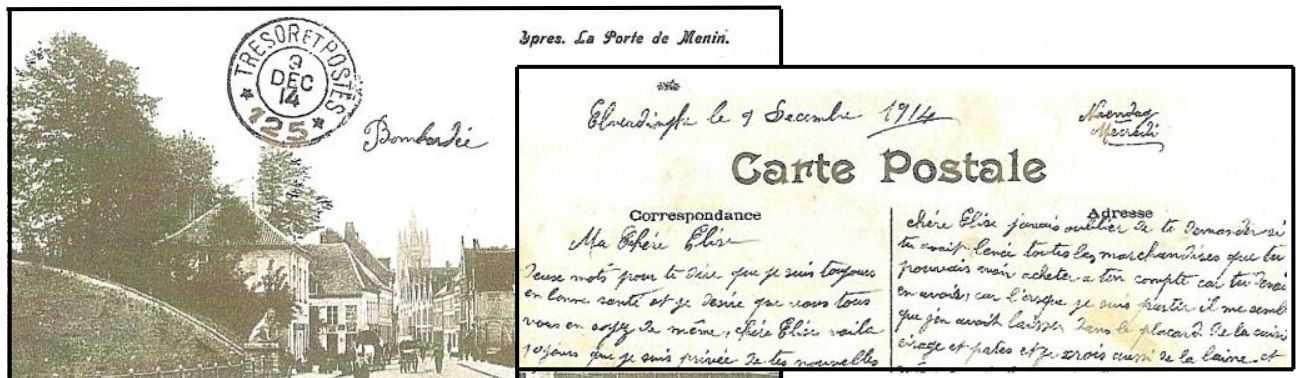 Ypres. La Porte de Menin.
TRESOR ET POSTES
9
DEC
14
125
Bombardée
Elverdinghe le 9 Decembre 1914
Mecredi
Carte Postale
Correspondance
Ma Chére Élise
Deux mots pour te dire que je suis toujours
en bonne santé et je desire que vous tous
vous en soyez de même, chére Elise voila
10 jours que je suis privée de tes nouvelles
Adresse
chére Elise javais oublier de te demander si
tu avait toutes les marchandises que tu
pouvais avoir acheter a ton compte car tu
en avoir, car l'orsque je suis partir il me semble
que j'en avait laisser dans le placard de la
cirage et pates et je crois aussi de la laine et